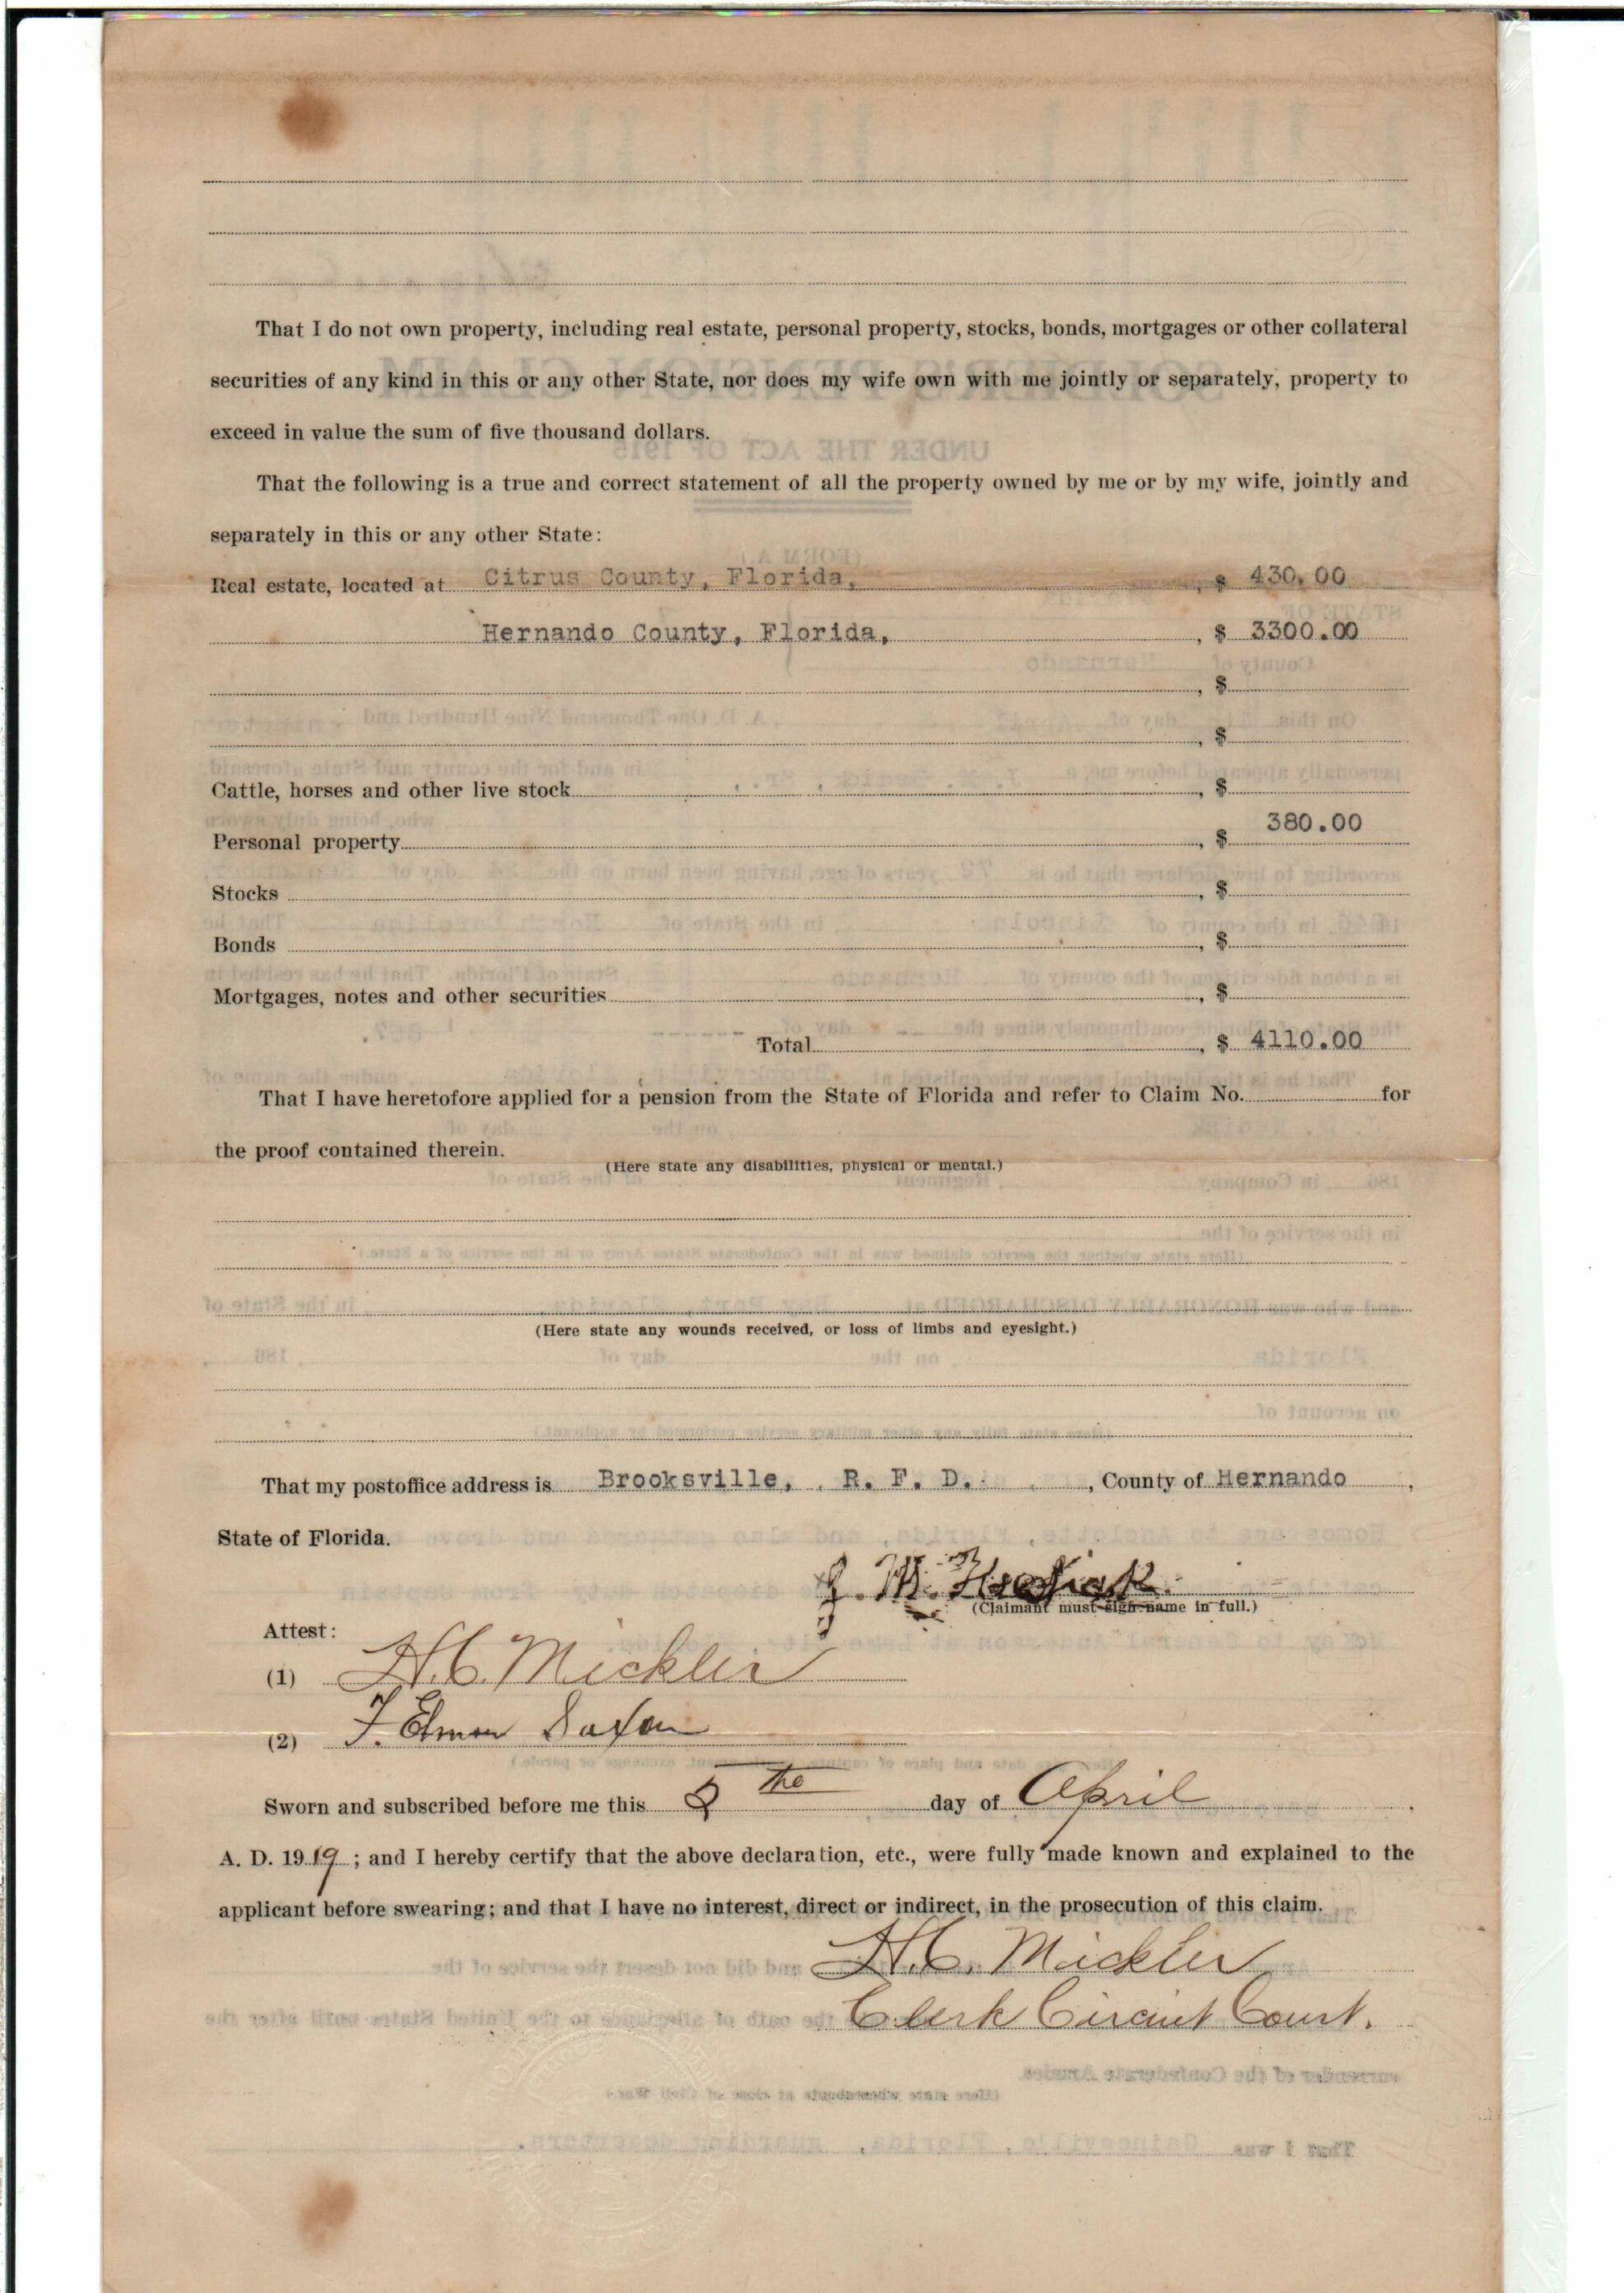 That I do not own property, including real estate, personal property, stocks, bonds, mortgages or other collateral
securities of any kind in this or any other State, nor does my wife own with me jointly or separately, property to
exceed in value the sum of five thousand dollars.
That the following is a true and correct statement of all the property owned by me or by my wife, jointly and
separately in this or any other State:
Real estate, located at Citrus County, Florida, , $ 430.00
Hernando County, Florida, , $ 3300.00
, $
, $
Cattle, horses and other live stock , $
Personal property , $ 380.00
Stocks , $
Bonds , $
Mortgages, notes and other securities , $
Total , $ 4110.00
That I have heretofore applied for a pension from the State of Florida and refer to Claim No. for
the proof contained therein.
(Here state any disabilities, physical or mental.)
(Here state any wounds received, or loss of limbs and eyesight.)
That my postoffice address is Brooksville, R. F. D. , County of Hernando ,
State of Florida.
M.
(Claimant must sign name in full.)
Attest:
(1) H.C. Mickler
(2) F. Elmer Saxon
Sworn and subscribed before me this 5 the day of April .
A. D. 1919 ; and I hereby certify that the above declaration, etc., were fully made known and explained to the
applicant before swearing; and that I have no interest, direct or indirect, in the prosecution of this claim.
H.C. Mickler
Clerk Circuit Court.